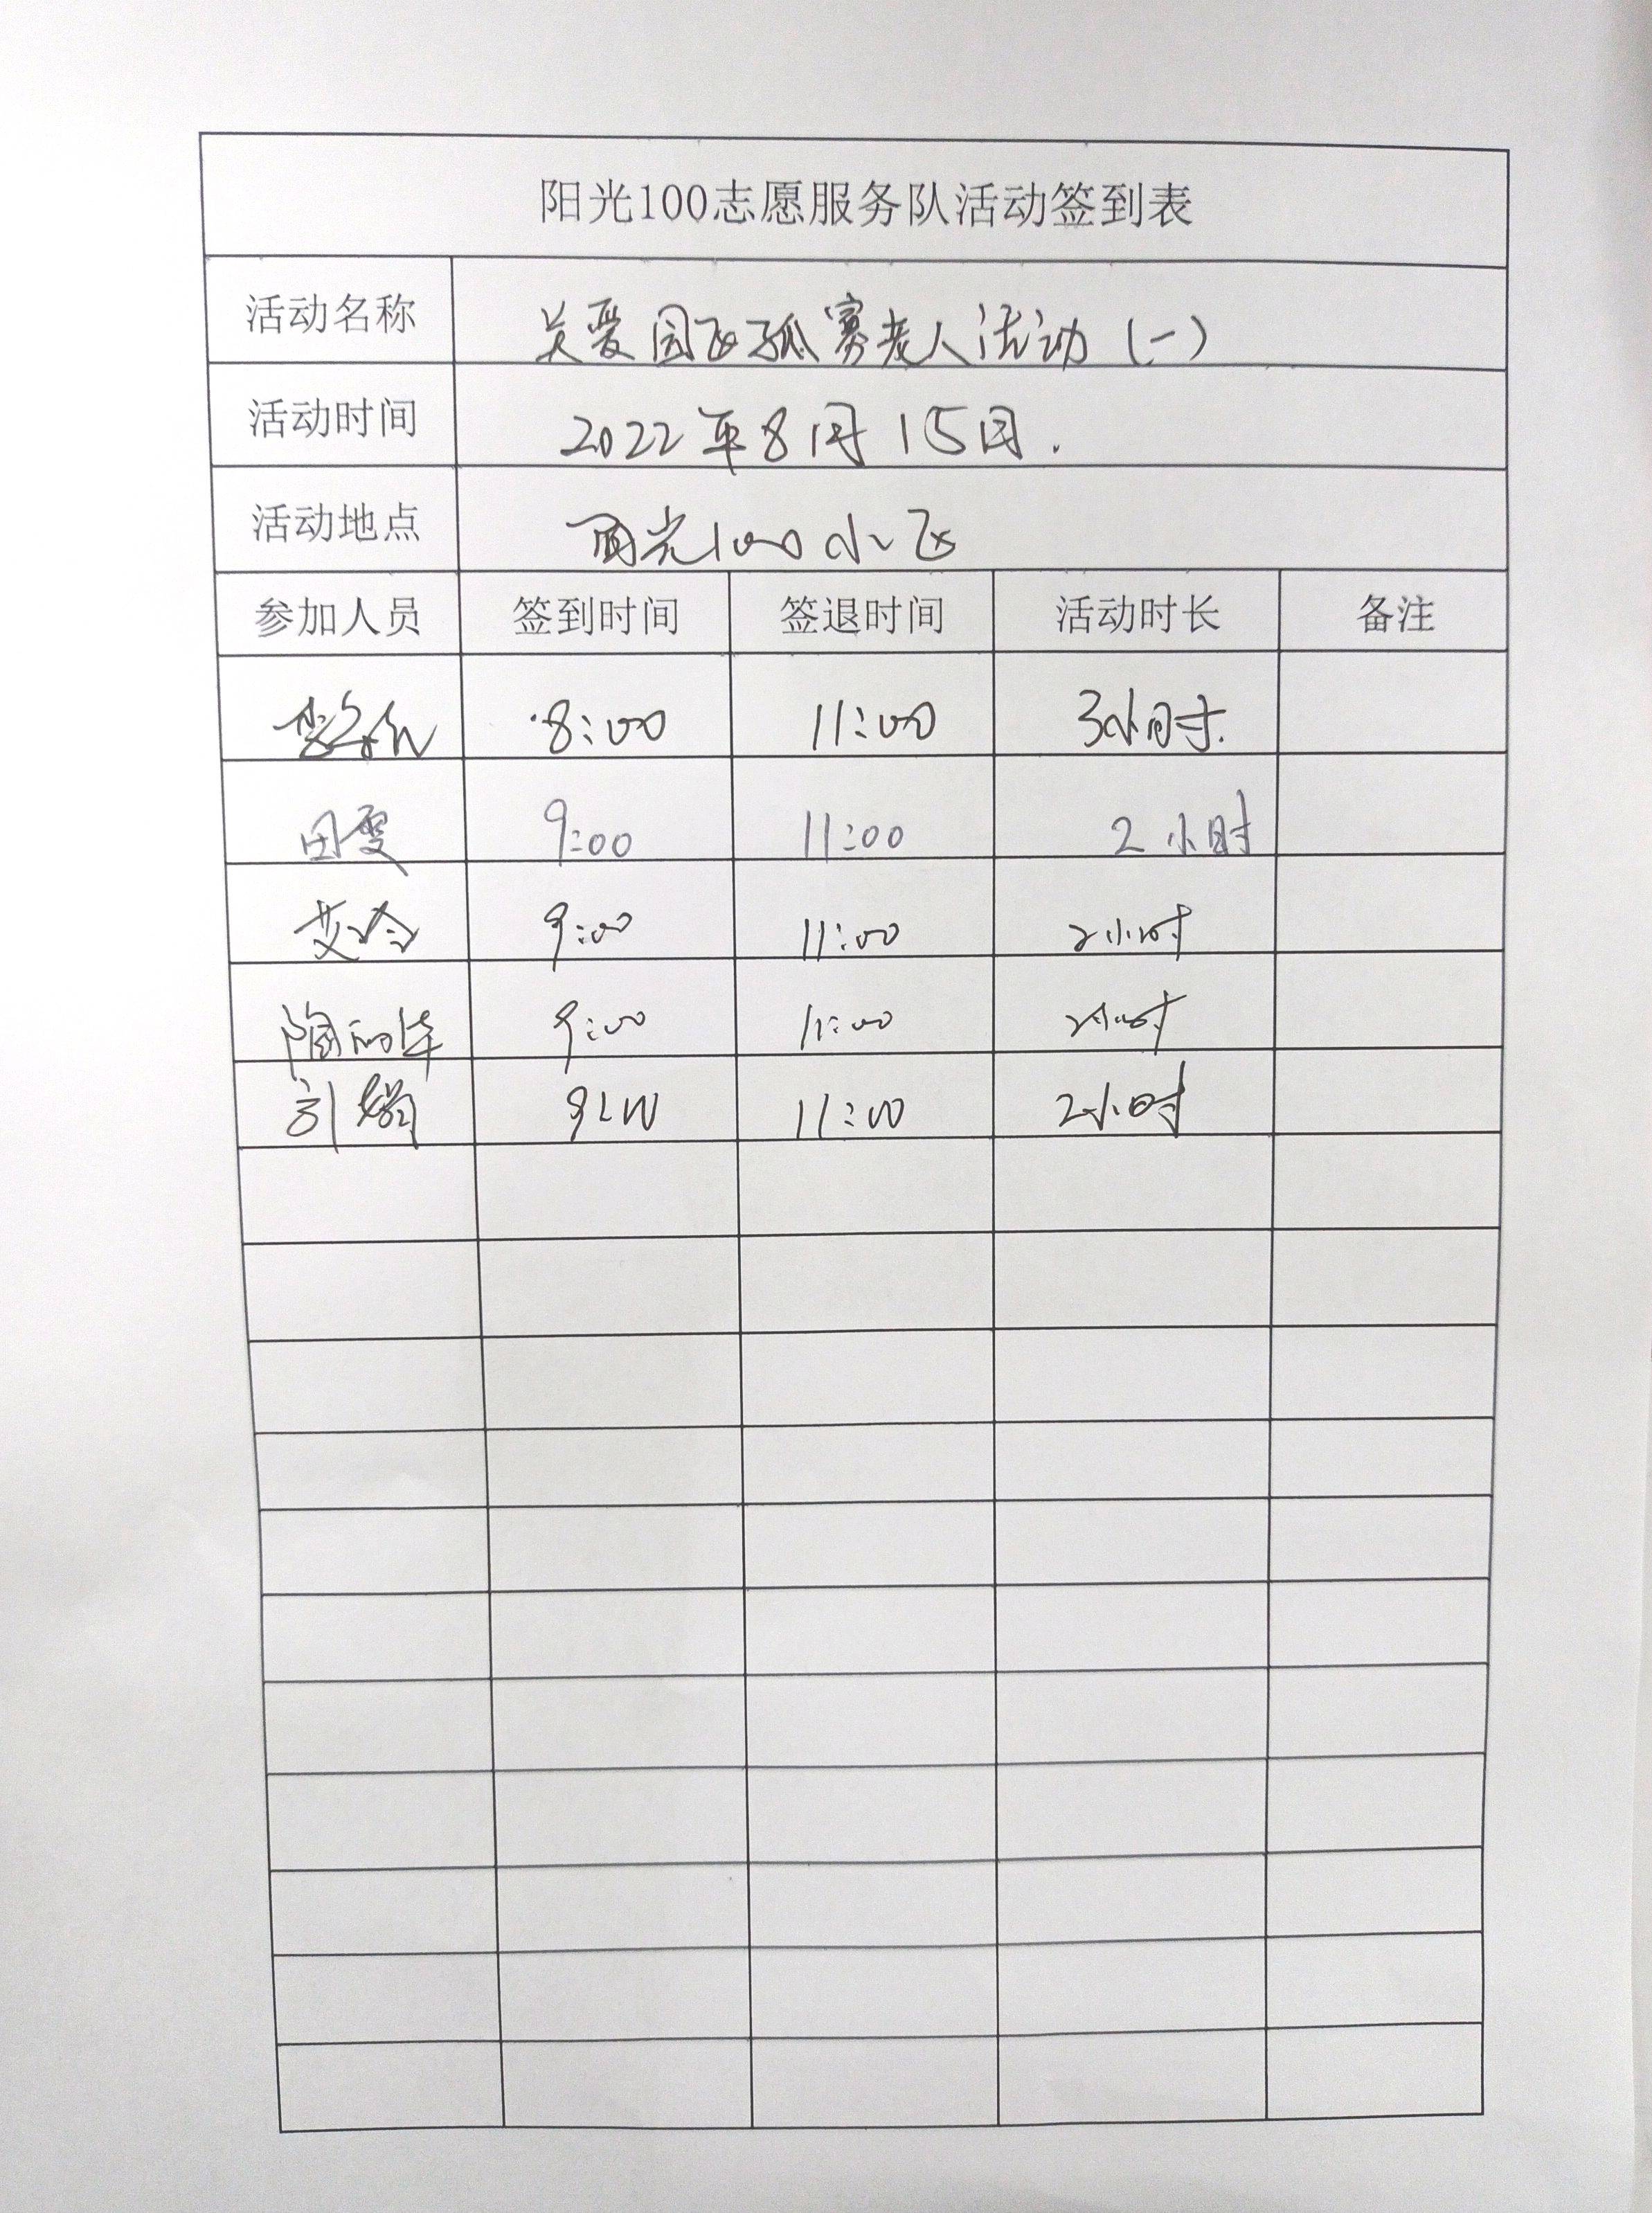 阳光100志愿服务队活动签到表
活动名称 关爱园区孤寡老人活动(一)
活动时间 2022年8月15日.
活动地点 阳光100小区
参加人员 签到时间 签退时间 活动时长 备注
8:00 11:00 3小时.
田雯 9:00 11:00 2小时
艾玲 9:00 11:00 2小时
陶丽华 9:00 11:00 2小时
娟 9:00 11:00 2小时